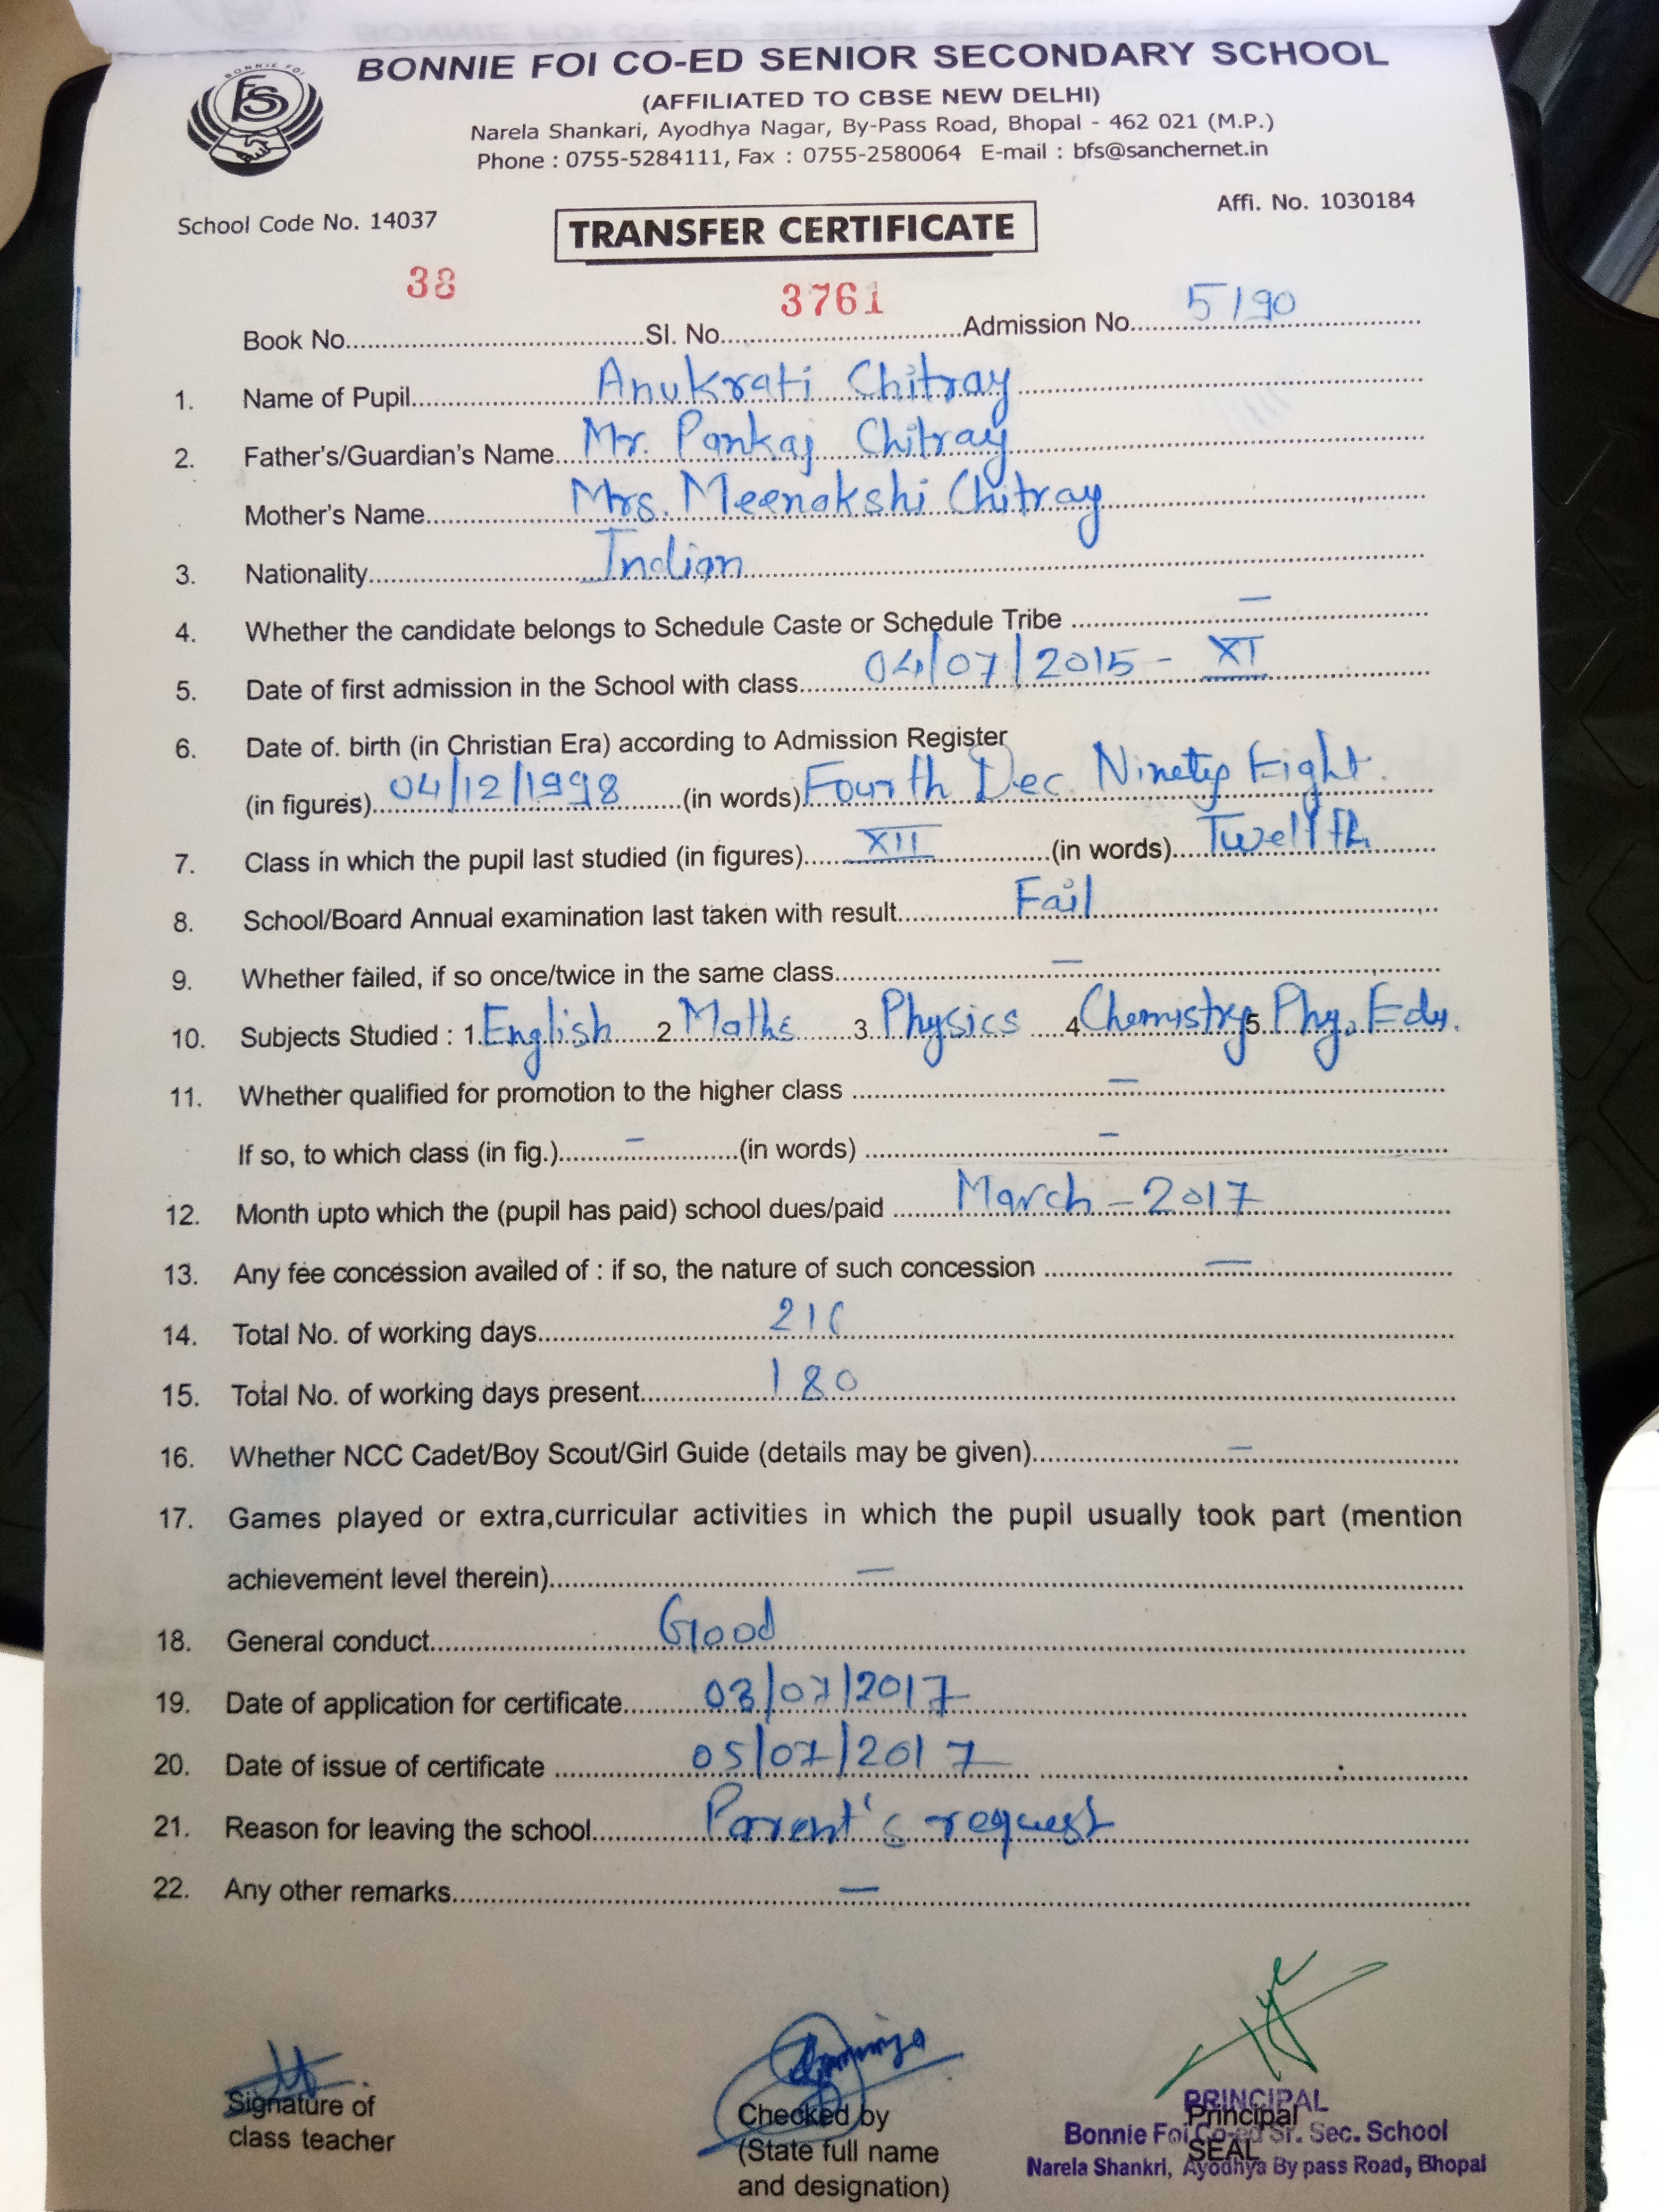 BONNIE FOI CO-ED SENIOR SECONDARY SCHOOL
(AFFILIATED TO CBSE NEW DELHI)
Narela Shankari, Ayodhya Nagar, By-Pass Road, Bhopal - 462 021 (M.P.)
Phone : 0755-5284111, Fax : 0755-2580064 E-mail : bfs@sanchernet.in
BONNIE FOI
School Code No. 14037
Affi. No. 1030184
TRANSFER CERTIFICATE
Book No. 38 Sl. No. 3761 Admission No. 5190
1. Name of Pupil Anukrati Chitray
2. Father's/Guardian's Name Mr. Pankaj Chitray
Mother's Name Mrs. Meenakshi Chitray
3. Nationality Indian
4. Whether the candidate belongs to Schedule Caste or Schedule Tribe —
5. Date of first admission in the School with class 04/07/2015 - XI
6. Date of. birth (in Christian Era) according to Admission Register
(in figures) 04/12/1998 (in words) Fourth Dec. Ninety Eight.
7. Class in which the pupil last studied (in figures) XII (in words) Twelfth
8. School/Board Annual examination last taken with result Fail
9. Whether failed, if so once/twice in the same class —
10. Subjects Studied : 1. English 2. Maths 3. Physics 4. Chemistry 5. Phy. Edu.
11. Whether qualified for promotion to the higher class —
If so, to which class (in fig.) — (in words) —
12. Month upto which the (pupil has paid) school dues/paid March - 2017
13. Any fee concession availed of : if so, the nature of such concession —
14. Total No. of working days
15. Total No. of working days present 180
16. Whether NCC Cadet/Boy Scout/Girl Guide (details may be given) —
17. Games played or extra,curricular activities in which the pupil usually took part (mention
achievement level therein) —
18. General conduct Good
19. Date of application for certificate 03/07/2017
20. Date of issue of certificate 05/07/2017
21. Reason for leaving the school Parent's request
22. Any other remarks —
Signature of
class teacher
Checked by
(State full name
and designation)
PRINCIPAL
Principal
Bonnie Foi Co-ed Sr. Sec. School
SEAL
Narela Shankri, Ayodhya By pass Road, Bhopal